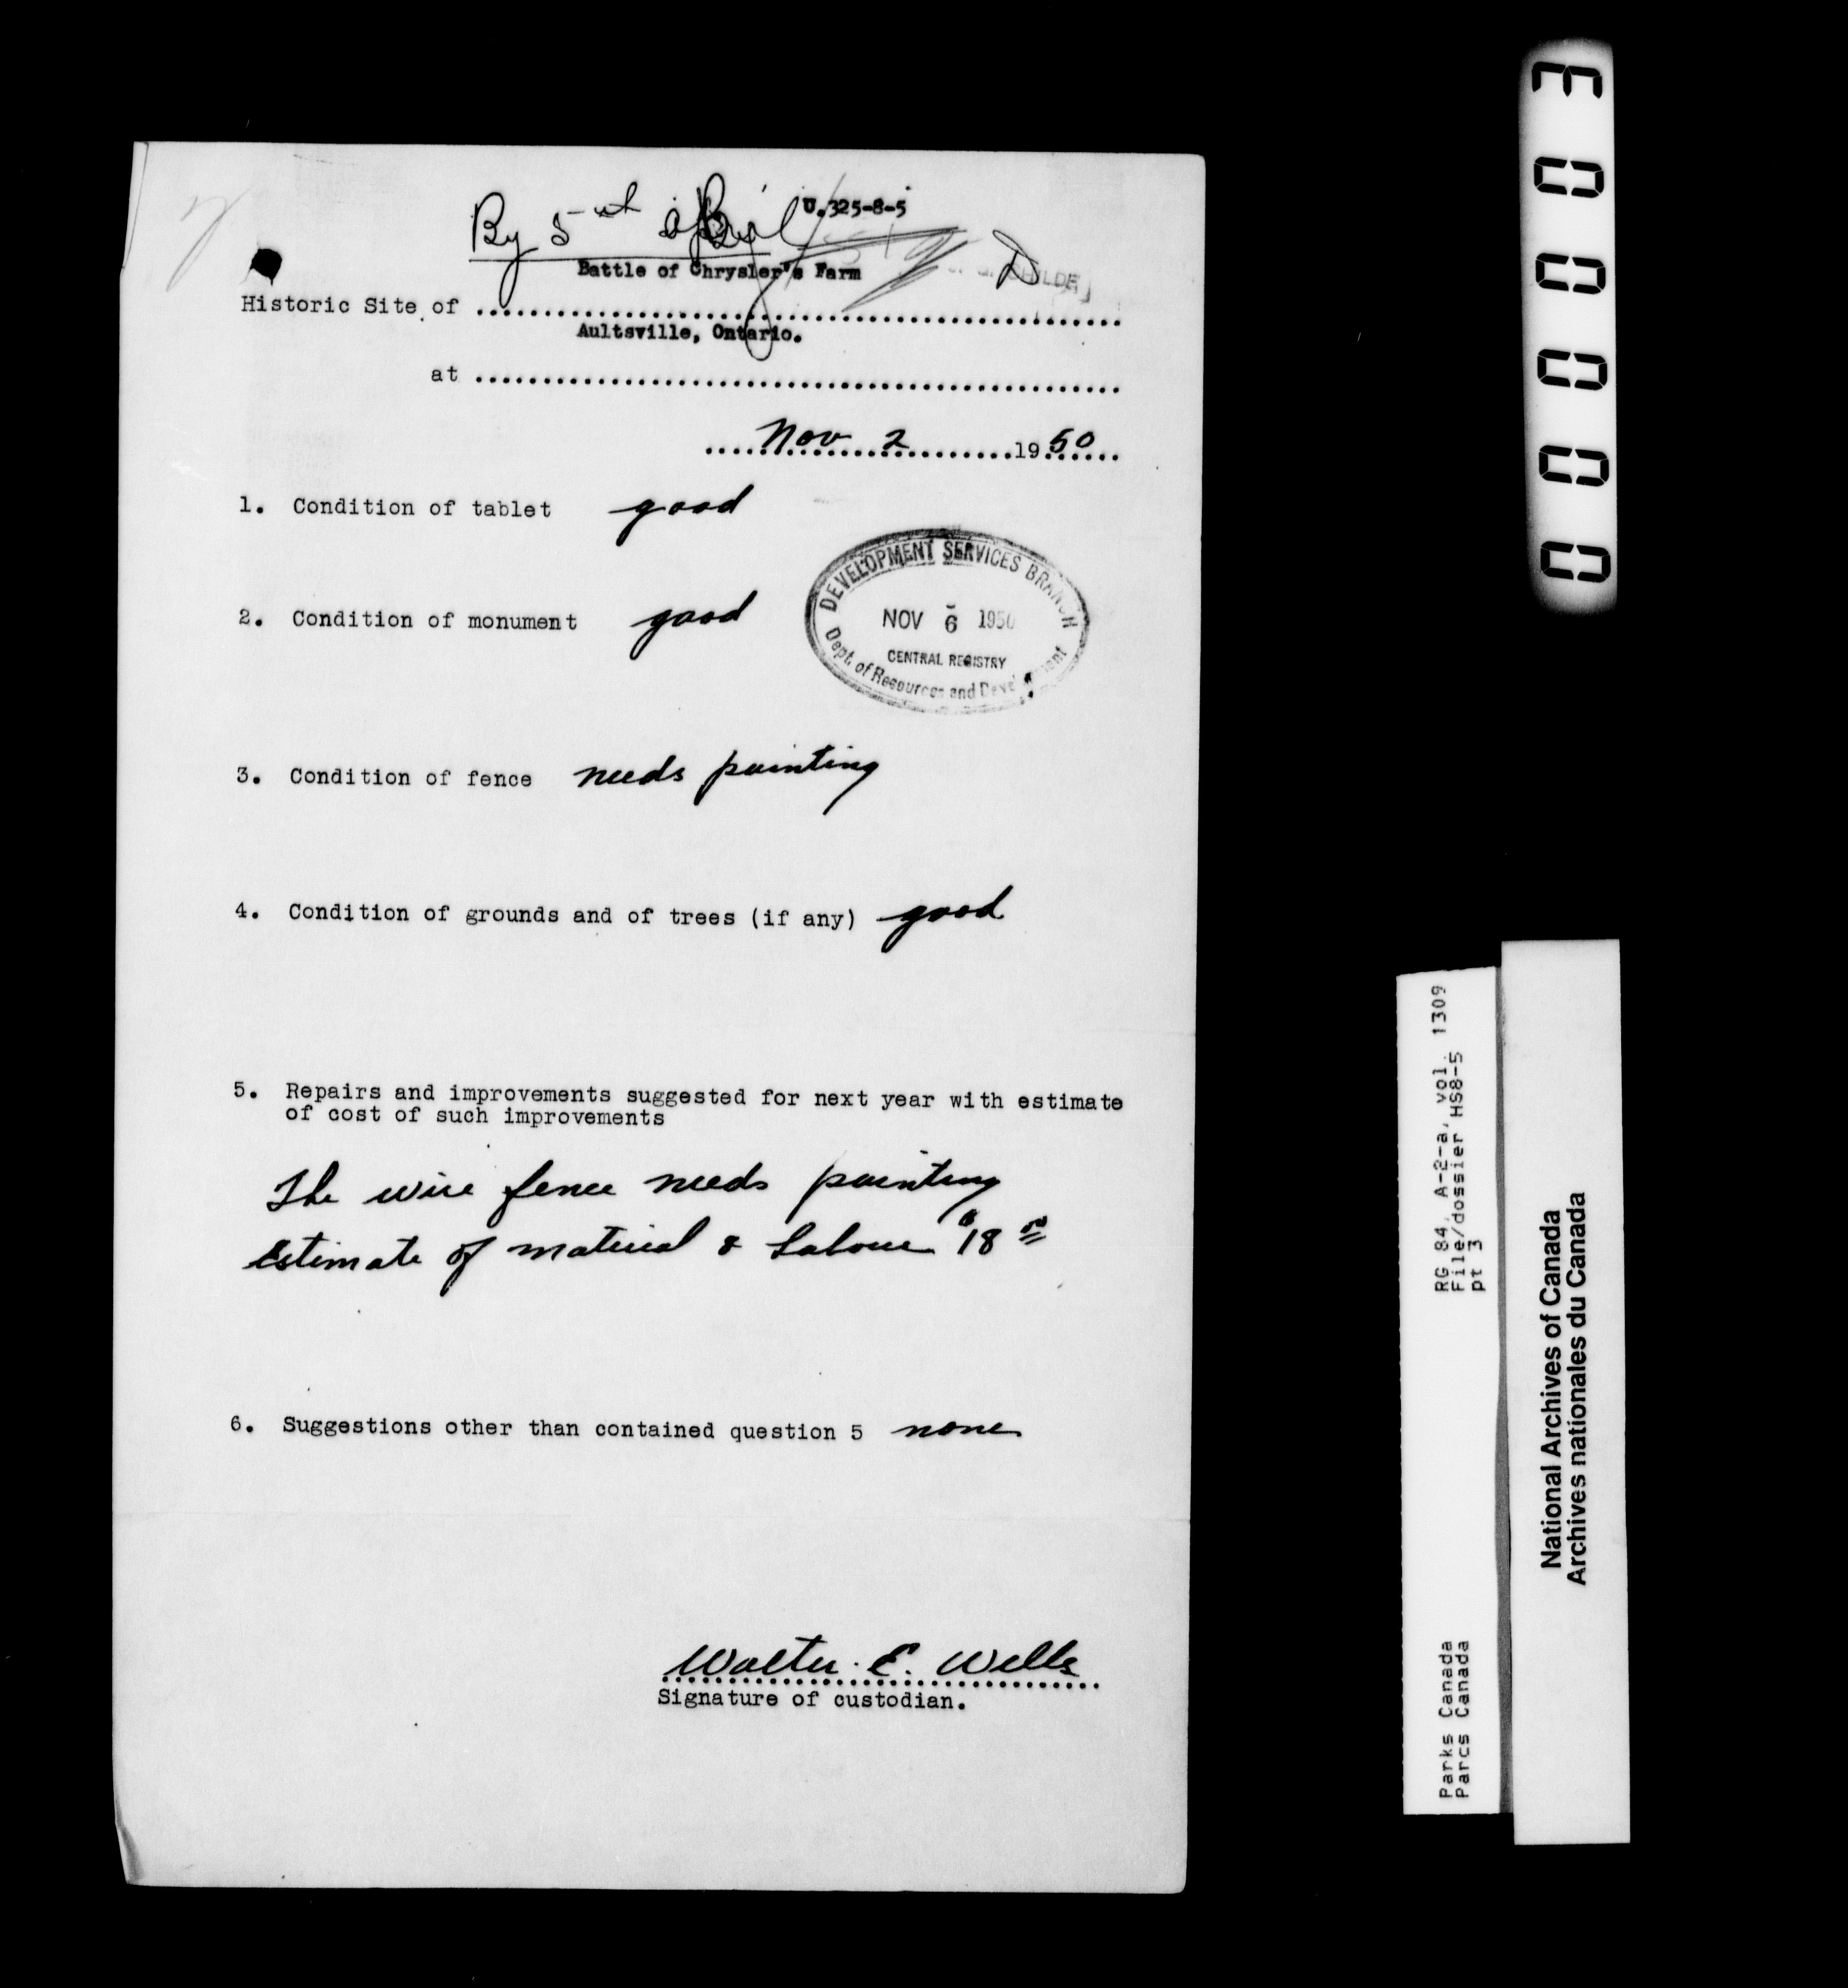 By 5
U.325-8-5
Battle of Chrysler's Farm
Historic Site of ................................................
Aultsville, Ontario.
at ................................................
Nov 2 1950
1. Condition of tablet good
DEVELOPMENT SERVICES BRANCH
NOV 6 1950
CENTRAL REGISTRY
Dept. of Resources and Development
2. Condition of monument good
3. Condition of fence needs painting
4. Condition of grounds and of trees (if any) good
5. Repairs and improvements suggested for next year with estimate
of cost of such improvements
The wire fence needs painting
Estimate of material & Labour $18 00
6. Suggestions other than contained question 5 none
Walter. E. Wells
Signature of custodian.
000003
RG 84, A-2-a, vol. 1309
File/dossier HS8-5
pt 3
Parks Canada
Parcs Canada
National Archives of Canada
Archives nationales du Canada